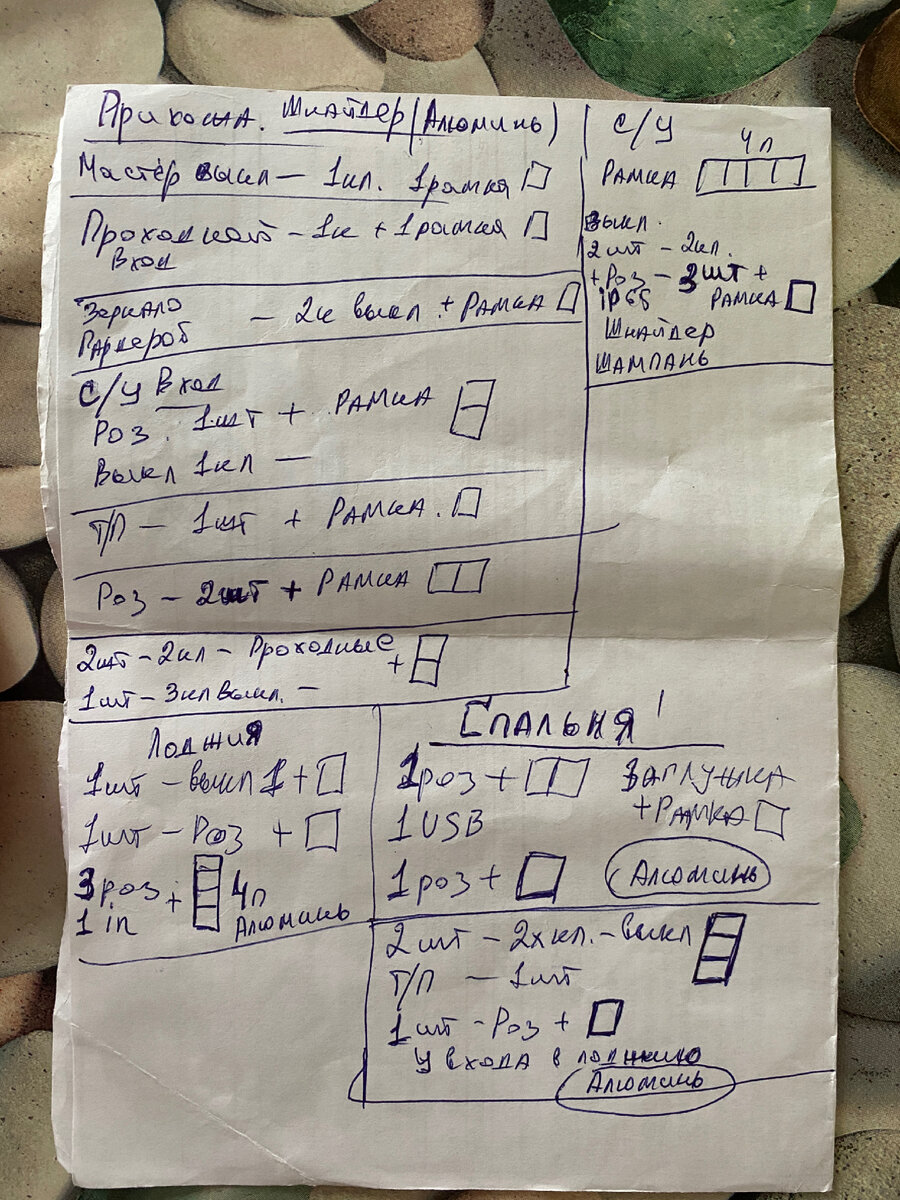 Прихожа. Шнайдер (Алюминь)
Мастер выкл — 1кл. 1рамка
Проходной – 1к + 1рамка
Вход
Зеркало
Гардероб — 2к выкл + Рамка
С/У Вход
Роз. 1шт + Рамка
Выкл 1кл —
Т/П — 1шт + Рамка.
Роз – 2шт + Рамка
2шт – 2кл – Проходные +
1шт – 3кл выкл. —
С/У
4п
Рамка
Выкл.
2шт – 2кл.
+ Роз – 3шт +
iP65 Рамка
Шнайдер
Шампань
Лоджия
1шт – выкл 1 +
1шт – Роз +
3роз +
1 in
4п
Алюминь
Спальня!
1роз +
1USB
Заглушка
+ Рамка
1роз +
Алюминь
2шт – 2х кл. – выкл
Т/П — 1шт
1шт – Роз +
у входа в лоджию
Алюминь